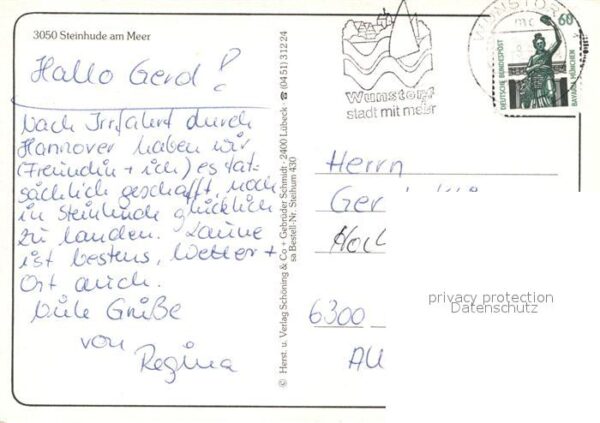 3050 Steinhude am Meer
Hallo Gerd!
Nach Irrfahrt durch
Hannover haben wir
(Freundin + ich) es tat-
sächlich geschafft, noch
in Steinhude glücklich
zu landen. Laune
ist bestens, Wetter +
Ort auch.
Viele Grüße
von
Regina
© Herst. u. Verlag Schöning & Co + Gebrüder Schmidt · 2400 Lübeck ☎ (04 51) 3 12 24
sa Bestell-Nr. Steihum 430
Wunstorf
stadt mit meer
WUNSTORF
mc
60
DEUTSCHE BUNDESPOST
BAVARIA MÜNCHEN
Herrn
Ger
Hoc
6300
privacy protection
Datenschutz